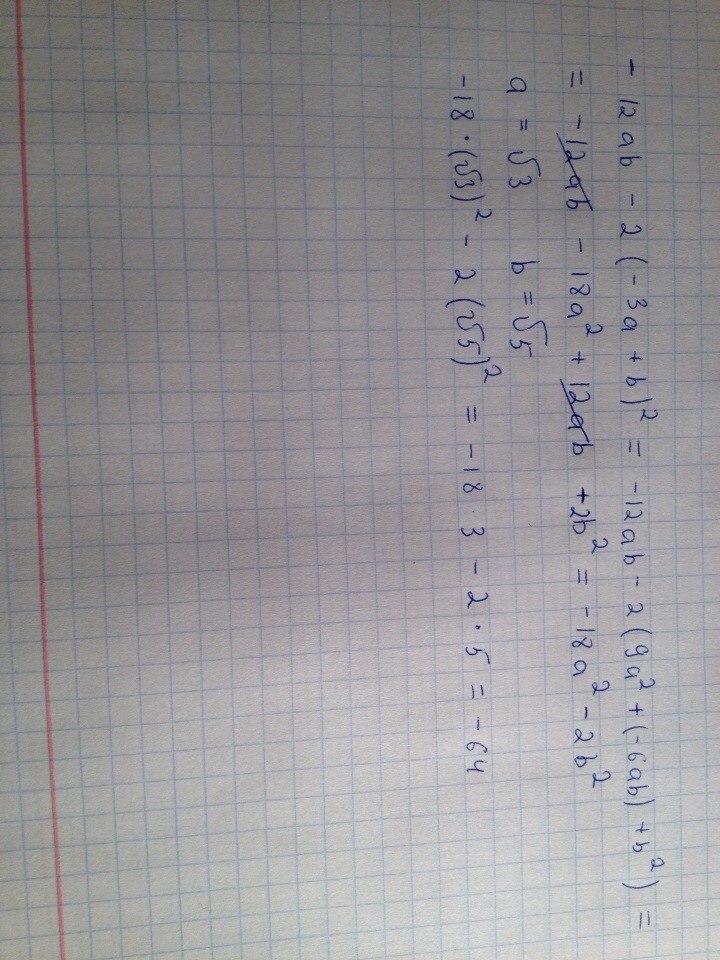 - 12ab - 2(-3a + b)² = -12ab - 2(9a² + (-6ab) + b²) =
= -12ab - 18a² + 12ab + 2b² = -18a² - 2b²
a = √3 b = √5
-18 · (√3)² - 2(√5)² = -18 · 3 - 2 · 5 = -64